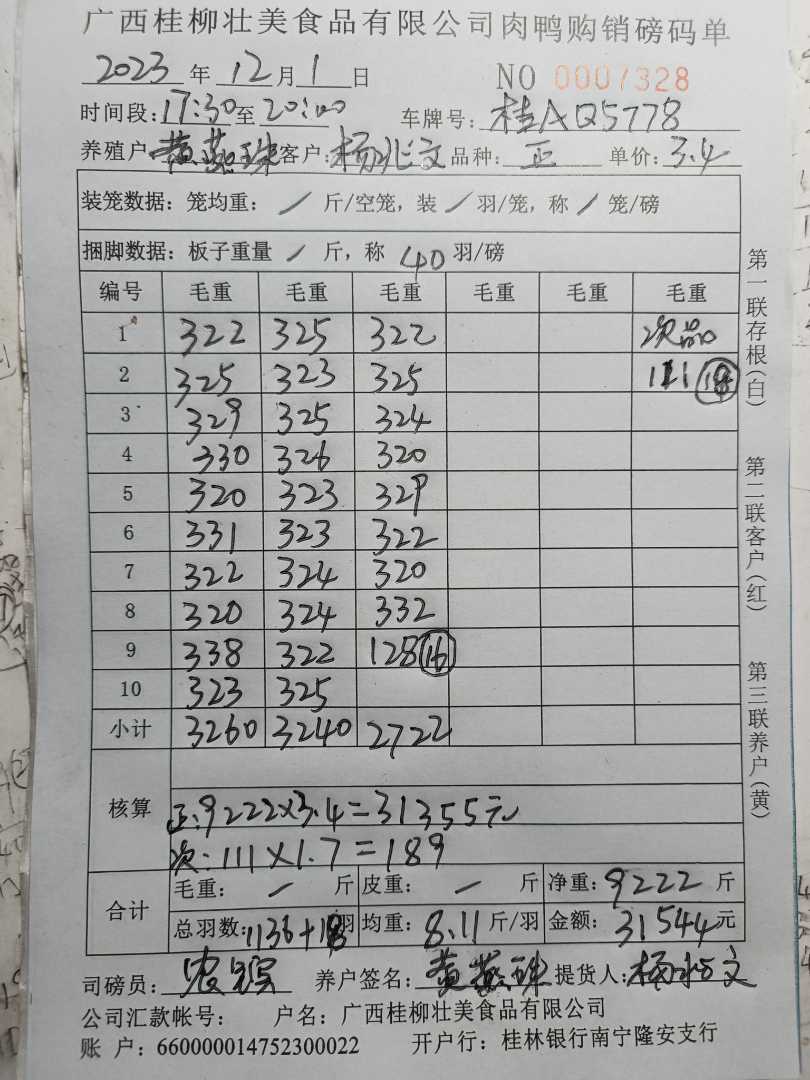 广西桂柳壮美食品有限公司肉鸭购销磅码单
2023 年 12 月 1 日 NO 0007328
时间段: 17:30 至 20:00 车牌号: 桂AQ5778
养殖户: 黄燕珠 客户: 杨兆文 品种: 正 单价: 3.4
装笼数据: 笼均重: / 斤/空笼, 装 / 羽/笼, 称 / 笼/磅
捆脚数据: 板子重量 / 斤, 称 40 羽/磅
编号 毛重 毛重 毛重 毛重 毛重 毛重
1 322 325 322 次品
2 325 323 325 111 18
3 329 325 324
4 330 326 320
5 320 323 329
6 331 323 322
7 322 324 320
8 320 324 332
9 338 322 128 16
10 323 325
小计 3260 3240 2722
核算
正:9222×3.4=31355元
次:111×1.7=189
合计
毛重: / 斤 皮重: / 斤 净重: 9222 斤
总羽数: 1136+18羽 均重: 8.11 斤/羽 金额: 31544 元
司磅员: 养户签名: 黄燕珠 提货人: 杨兆文
公司汇款帐号: 户名: 广西桂柳壮美食品有限公司
账 户: 660000014752300022 开户行: 桂林银行南宁隆安支行
第一联存根(白)
第二联客户(红)
第三联养户(黄)